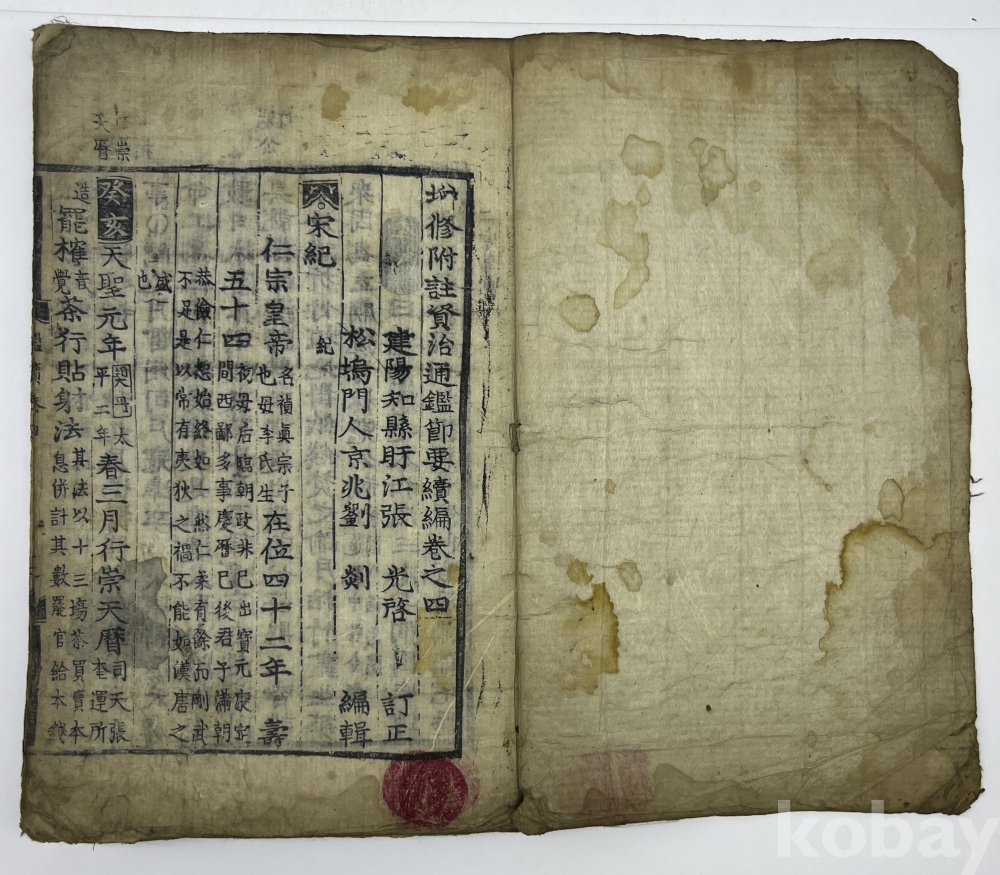 增修附註資治通鑑節要續編卷之四
建陽知縣盱江張 光啓 訂正
松塢門人京兆劉 剡 編輯
宋紀
紀
仁宗皇帝名禎眞宗子也母李氏生在位四十二年壽
五十四初母后臨朝政非已出寶元康定間西鄙多事慶曆已後君子滿朝
恭儉仁恕始終如一然仁柔有餘而剛武不足是以常有夷狄之禍不能如漢唐之
盛也
行崇天曆
癸亥天聖元年契丹太平二年春三月行崇天曆司天張奎運所
造罷榷音覺茶行貼射法其法以十三場茶買賣本息併計其數罷官給本錢
kobay